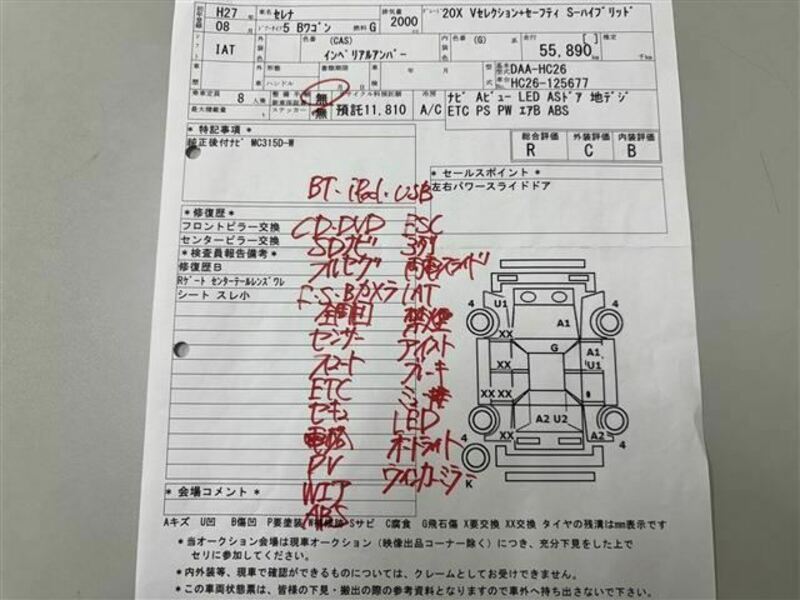 H27 車名 セレナ 排気量 2000 cc グレード 20X Vセレクション+セーフティ S-ハイブリッド
08 月 ドアー・タイプ 5 Bワゴン 燃料 G
シフト IAT 外装色 色番 (CAS) インペリアルアンバー 内装色 色番 (G) 系色 走行 55,890 km
車歴 外車 形態 ハンドル 車検 年 月 型式 DAA-HC26
車台 HC26-125677
乗車定員 8 人乗 無 リサイクル料預託額 冷房 ナビ Aビュー LED ASドア 地デジ
最大積載量 ステッカー 無 預託11,810 A/C ETC PS PW エアB ABS
総合評価 外装評価 内装評価
R C B
* 特記事項 *
純正後付ナビ MC315D-W
* セールスポイント *
左右パワースライドドア
BT・iPod・USB
* 修復歴 *
フロントピラー交換 CD・DVD ESC
センターピラー交換 SDナビ 3列
* 検査員報告備考 *
修復歴B フルセグ 両電スライド
Rゲート センターテールレンズワレ
シート スレ小 F.S.Bカメラ IAT
全周囲 禁煙
センサー アイスト
スマート ブレーキ
ETC
セキュ LED
電格 オートライト
PV ウインカーミラー
WIT
ABS
4 U1 4
A1
XX
G A1
XX U1
XX XX
A2 U2
4 XX A2 4
K
* 会場コメント *
Aキズ U凹 B傷凹 P要塗装 W補修跡 Sサビ C腐食 G飛石傷 X要交換 XX交換 タイヤの残溝はmm表示です
*当オークション会場は現車オークション(映像出品コーナー除く)につき、充分下見をした上で
セリに参加してください。
*内外装等、現車で確認ができるものについては、クレームとしてお受けできません。
*この車両状態票は、皆様の下見・搬出の際の参考資料となりますので車外へ持ち出さないで下さい。